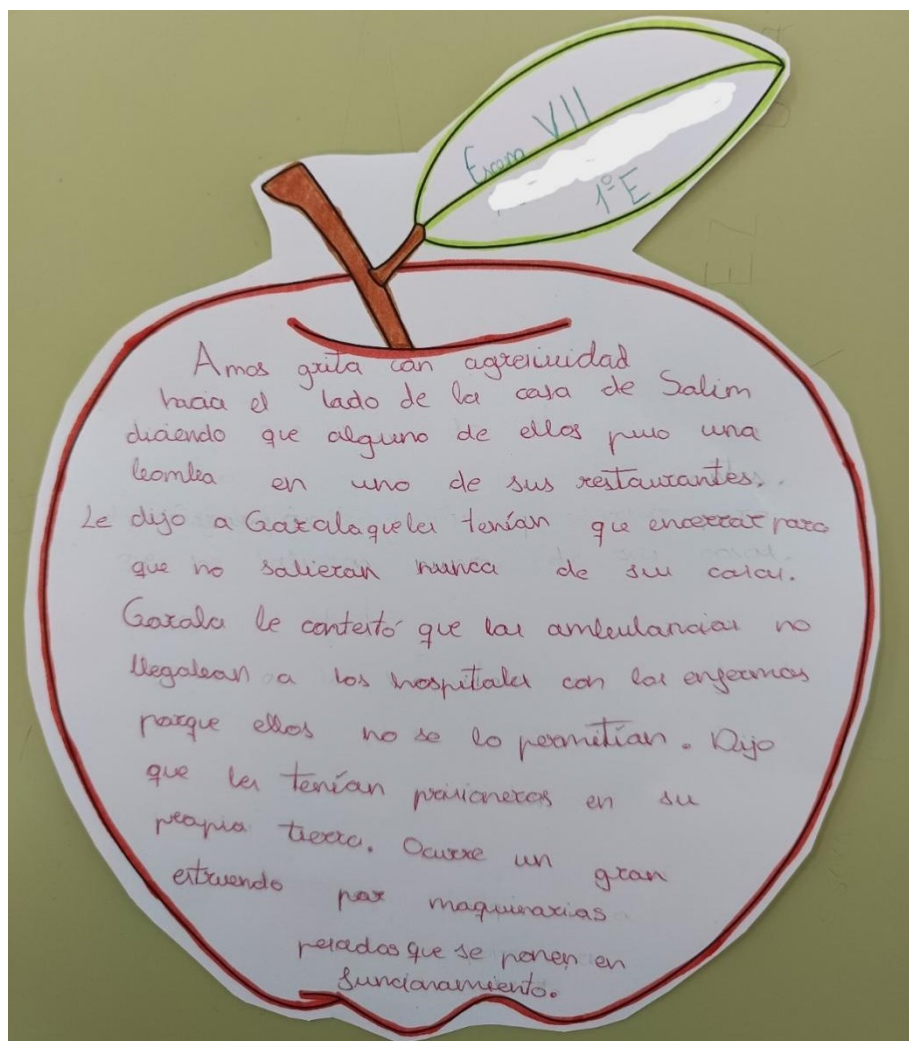 Escena VII
1º E
Amos grita con agresividad
hacia el lado de la casa de Salim
diciendo que alguno de ellos puso una
bomba en uno de sus restaurantes.
Le dijo a Gazala que les tenían que encerrar para
que no salieran nunca de sus casas.
Gazala le contestó que las ambulancias no
llegaban a los hospitales con los enfermos
porque ellos no se lo permitían. Dijo
que les tenían prisioneros en su
propia tierra. Ocurre un gran
estruendo por maquinarias
pesadas que se ponen en
funcionamiento.